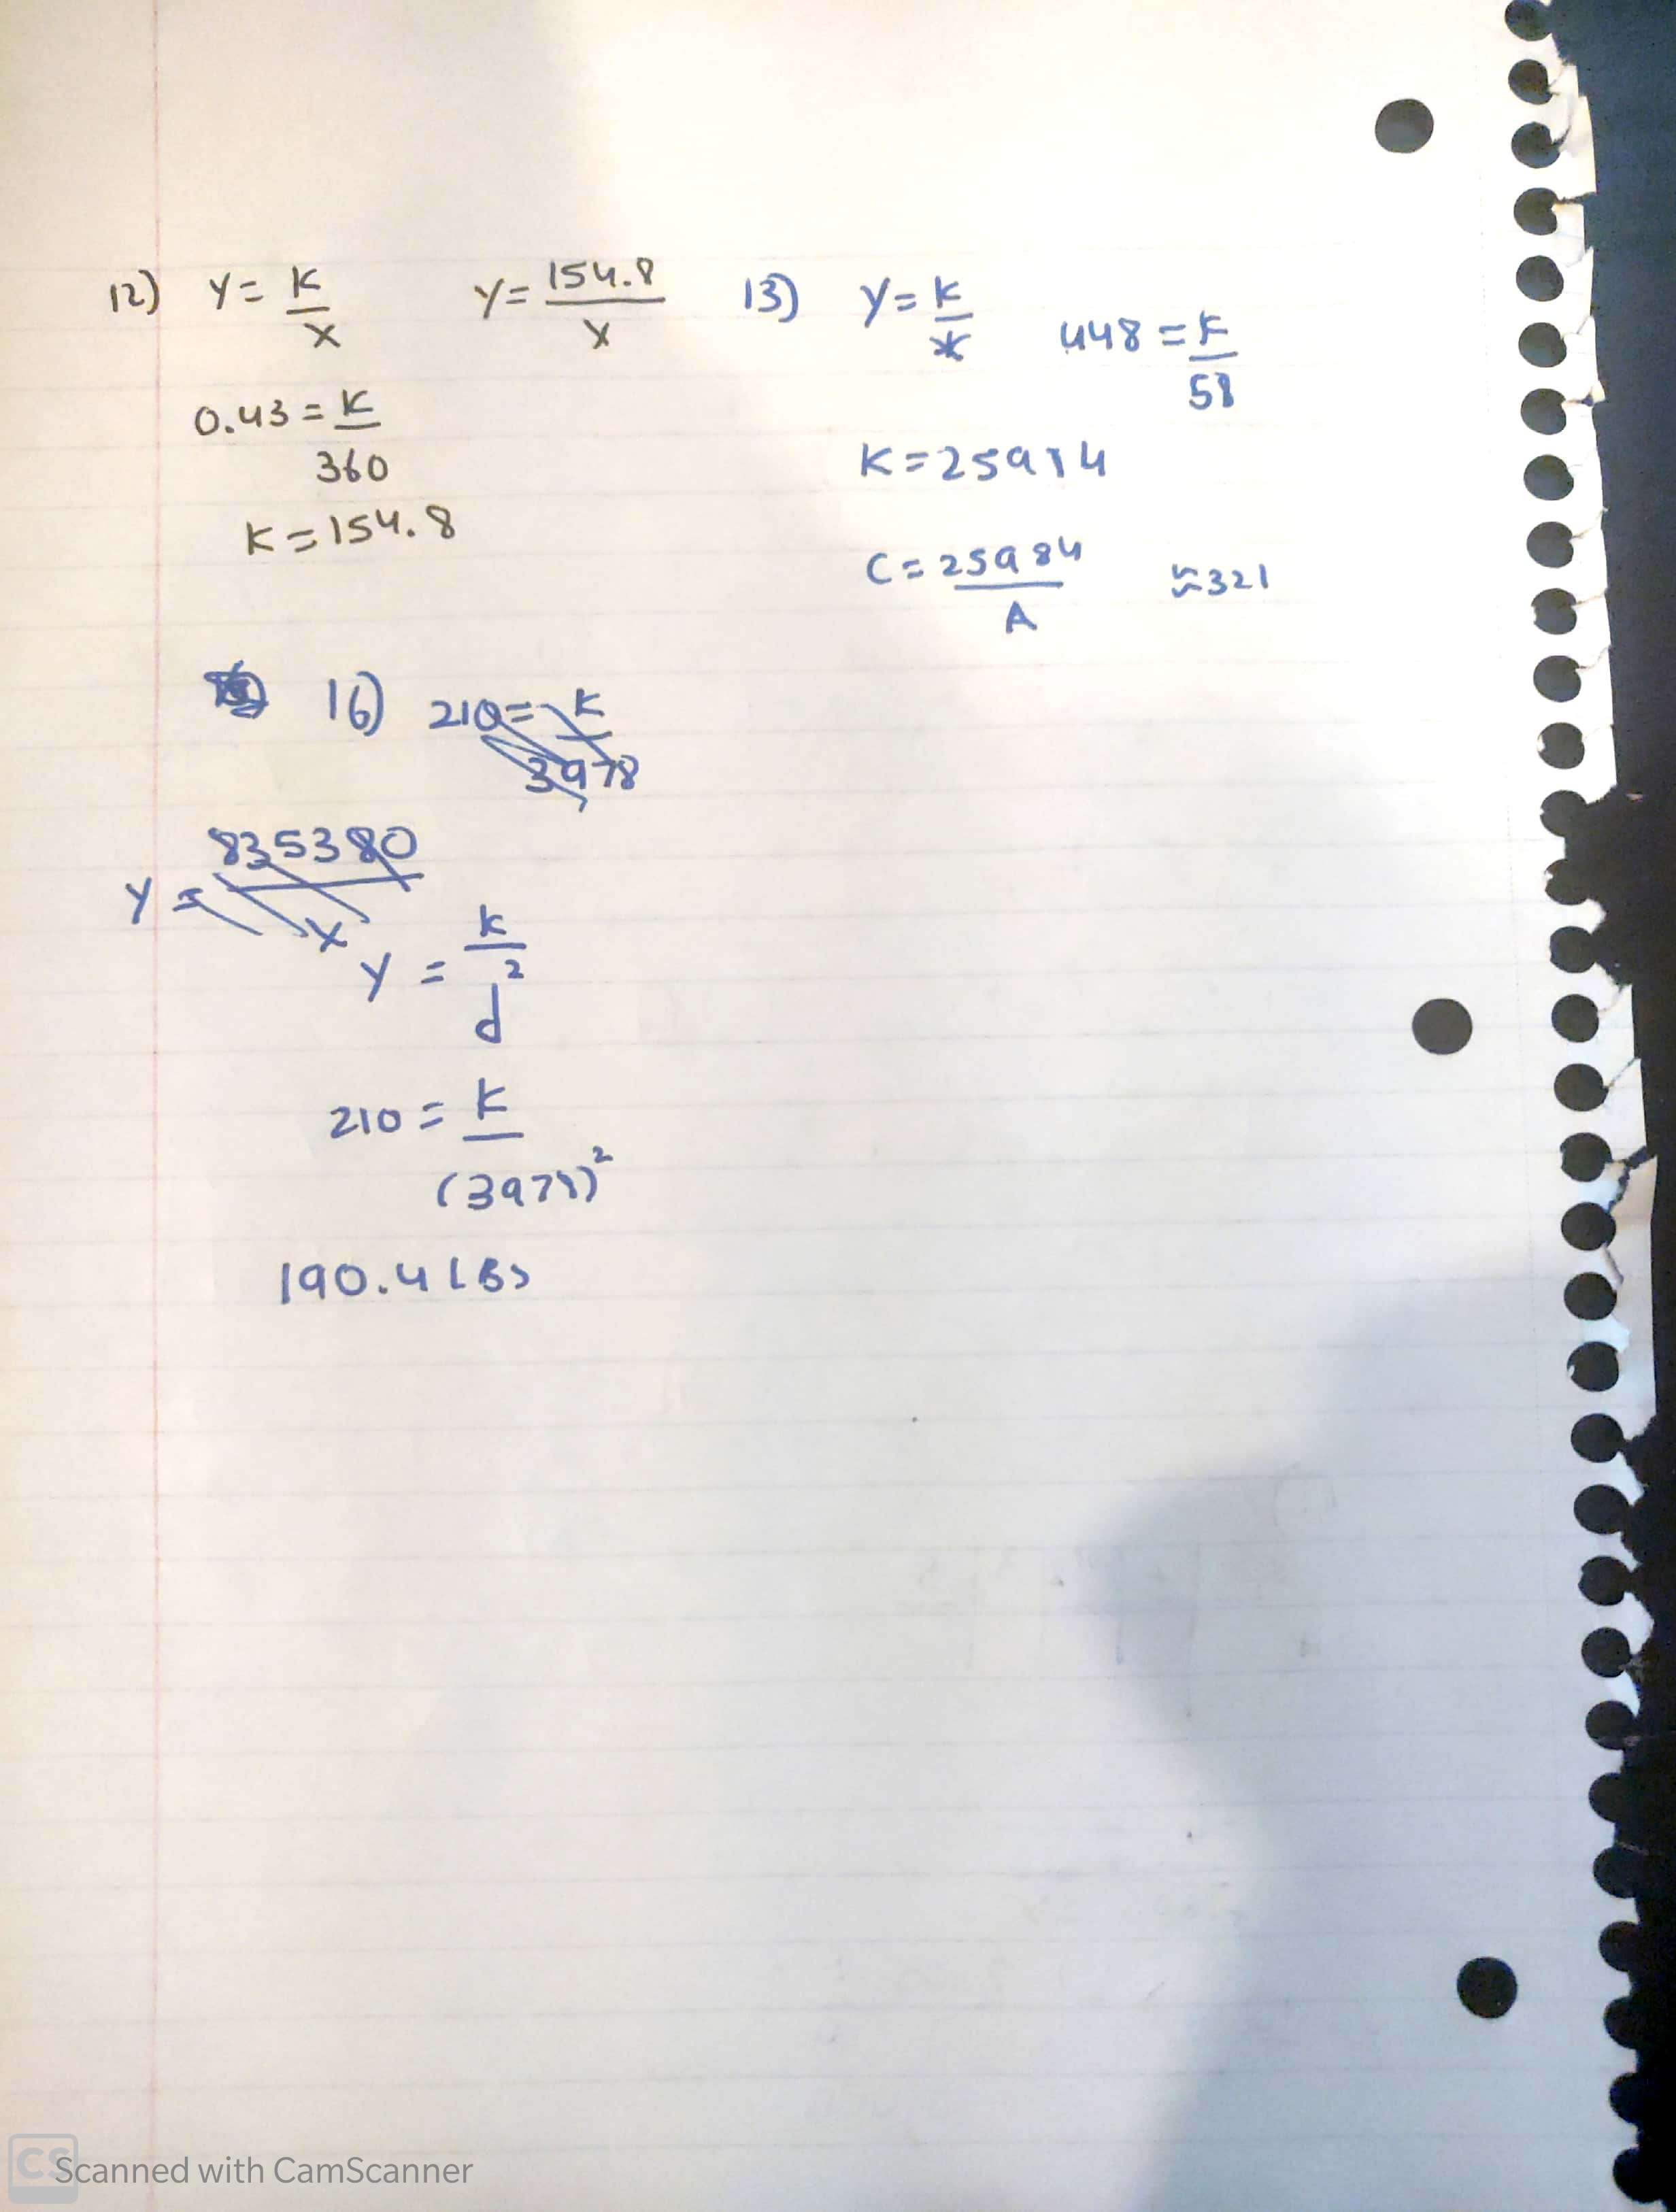 12) y = K/x
y = 154.8/x
0.43 = K/360
K = 154.8
13) y = K/x
448 = K/58
K = 25984
C = 25984/A ≈ 321
16) 210 = K/3978
y = 835380/x
y = K/d²
210 = K/(3978)²
190.4 LBS
CS Scanned with CamScanner